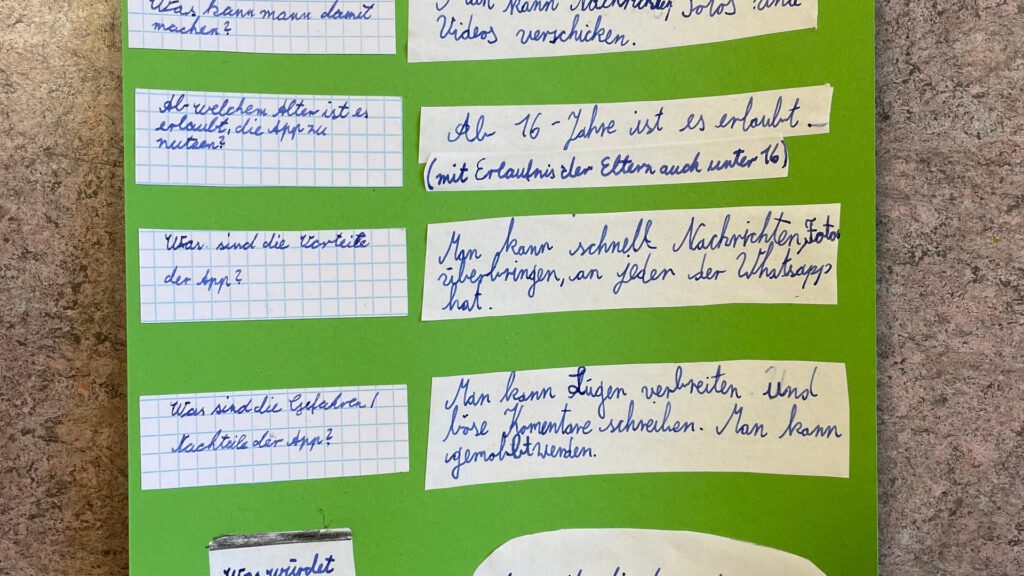 Was kann mann damit
machen?
Man kann Nachrichten, Fotos und
Videos verschicken.
Ab welchem Alter ist es
erlaubt, die App zu
nutzen?
Ab 16-Jahre ist es erlaubt
(mit Erlaufnis der Eltern auch unter 16)
Was sind die Vorteile
der App?
Man kann schnell Nachrichten, Foto
überbringen, an jeden der Whatsapp
hat.
Was sind die Gefahren /
Nachteile der App?
Man kann Lügen verbreiten und
böse Komentare schreiben. Man kann
gemobbt werden.
Was würdet